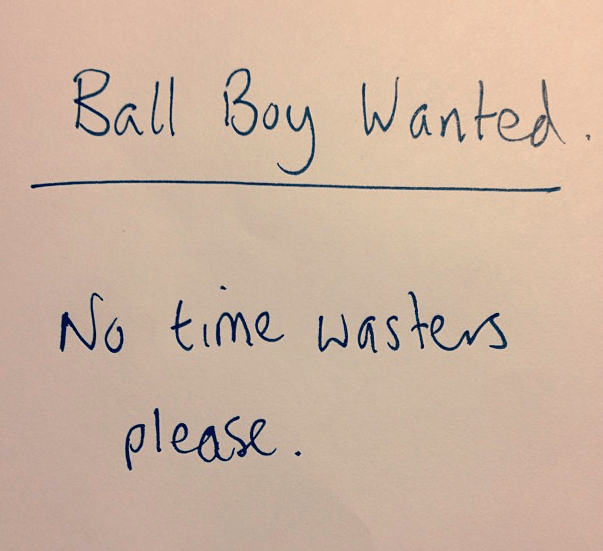 Ball Boy Wanted.
No time wasters
please.